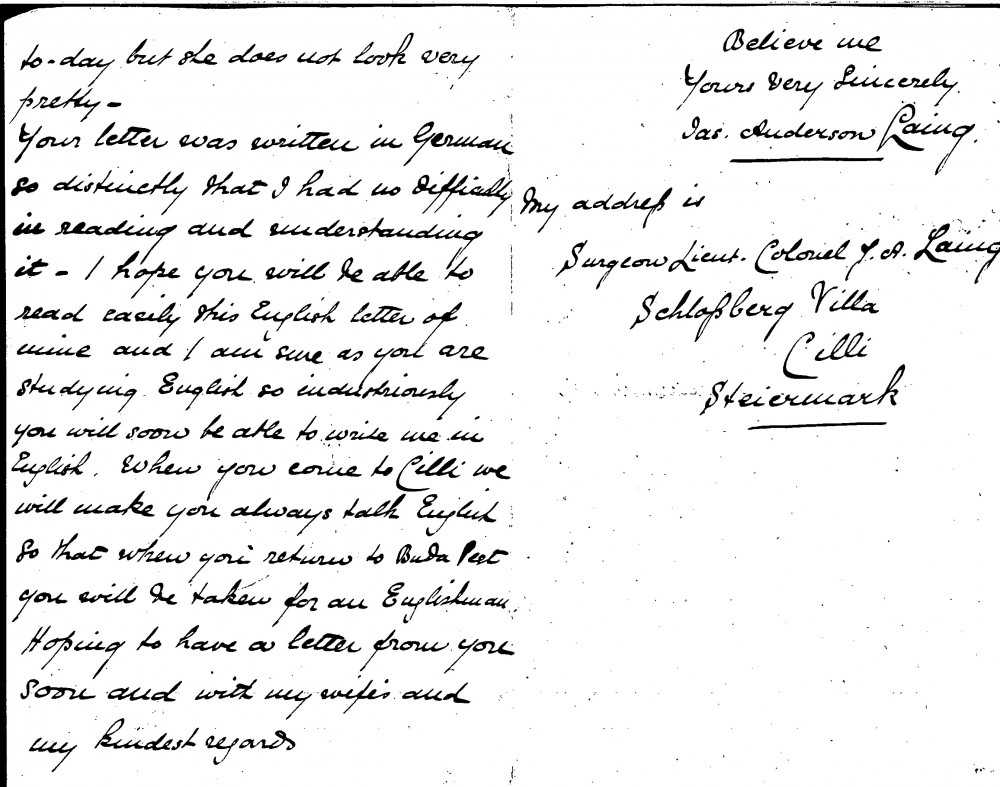 to-day but she does not look very
pretty -
Your letter was written in German
so distinctly that I had no difficulty
in reading and understanding
it - I hope you will be able to
read easily this English letter of
mine and I am sure as you are
studying English so industriously
you will soon be able to write me in
English. When you come to Cilli we
will make you always talk English
so that when you return to Buda Pest
you will be taken for an Englishman.
Hoping to have a letter from you
soon and with my wife's and
my kindest regards
Believe me
Yours Very Sincerely
Jas. Anderson Laing.
My addreſs is
Surgeon Lieut. Colonel J. A. Laing
Schloßberg Villa
Cilli
Steiermark